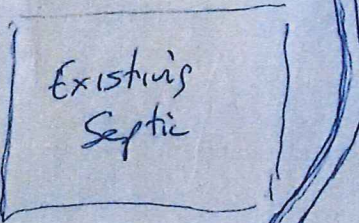 Existing
Septic